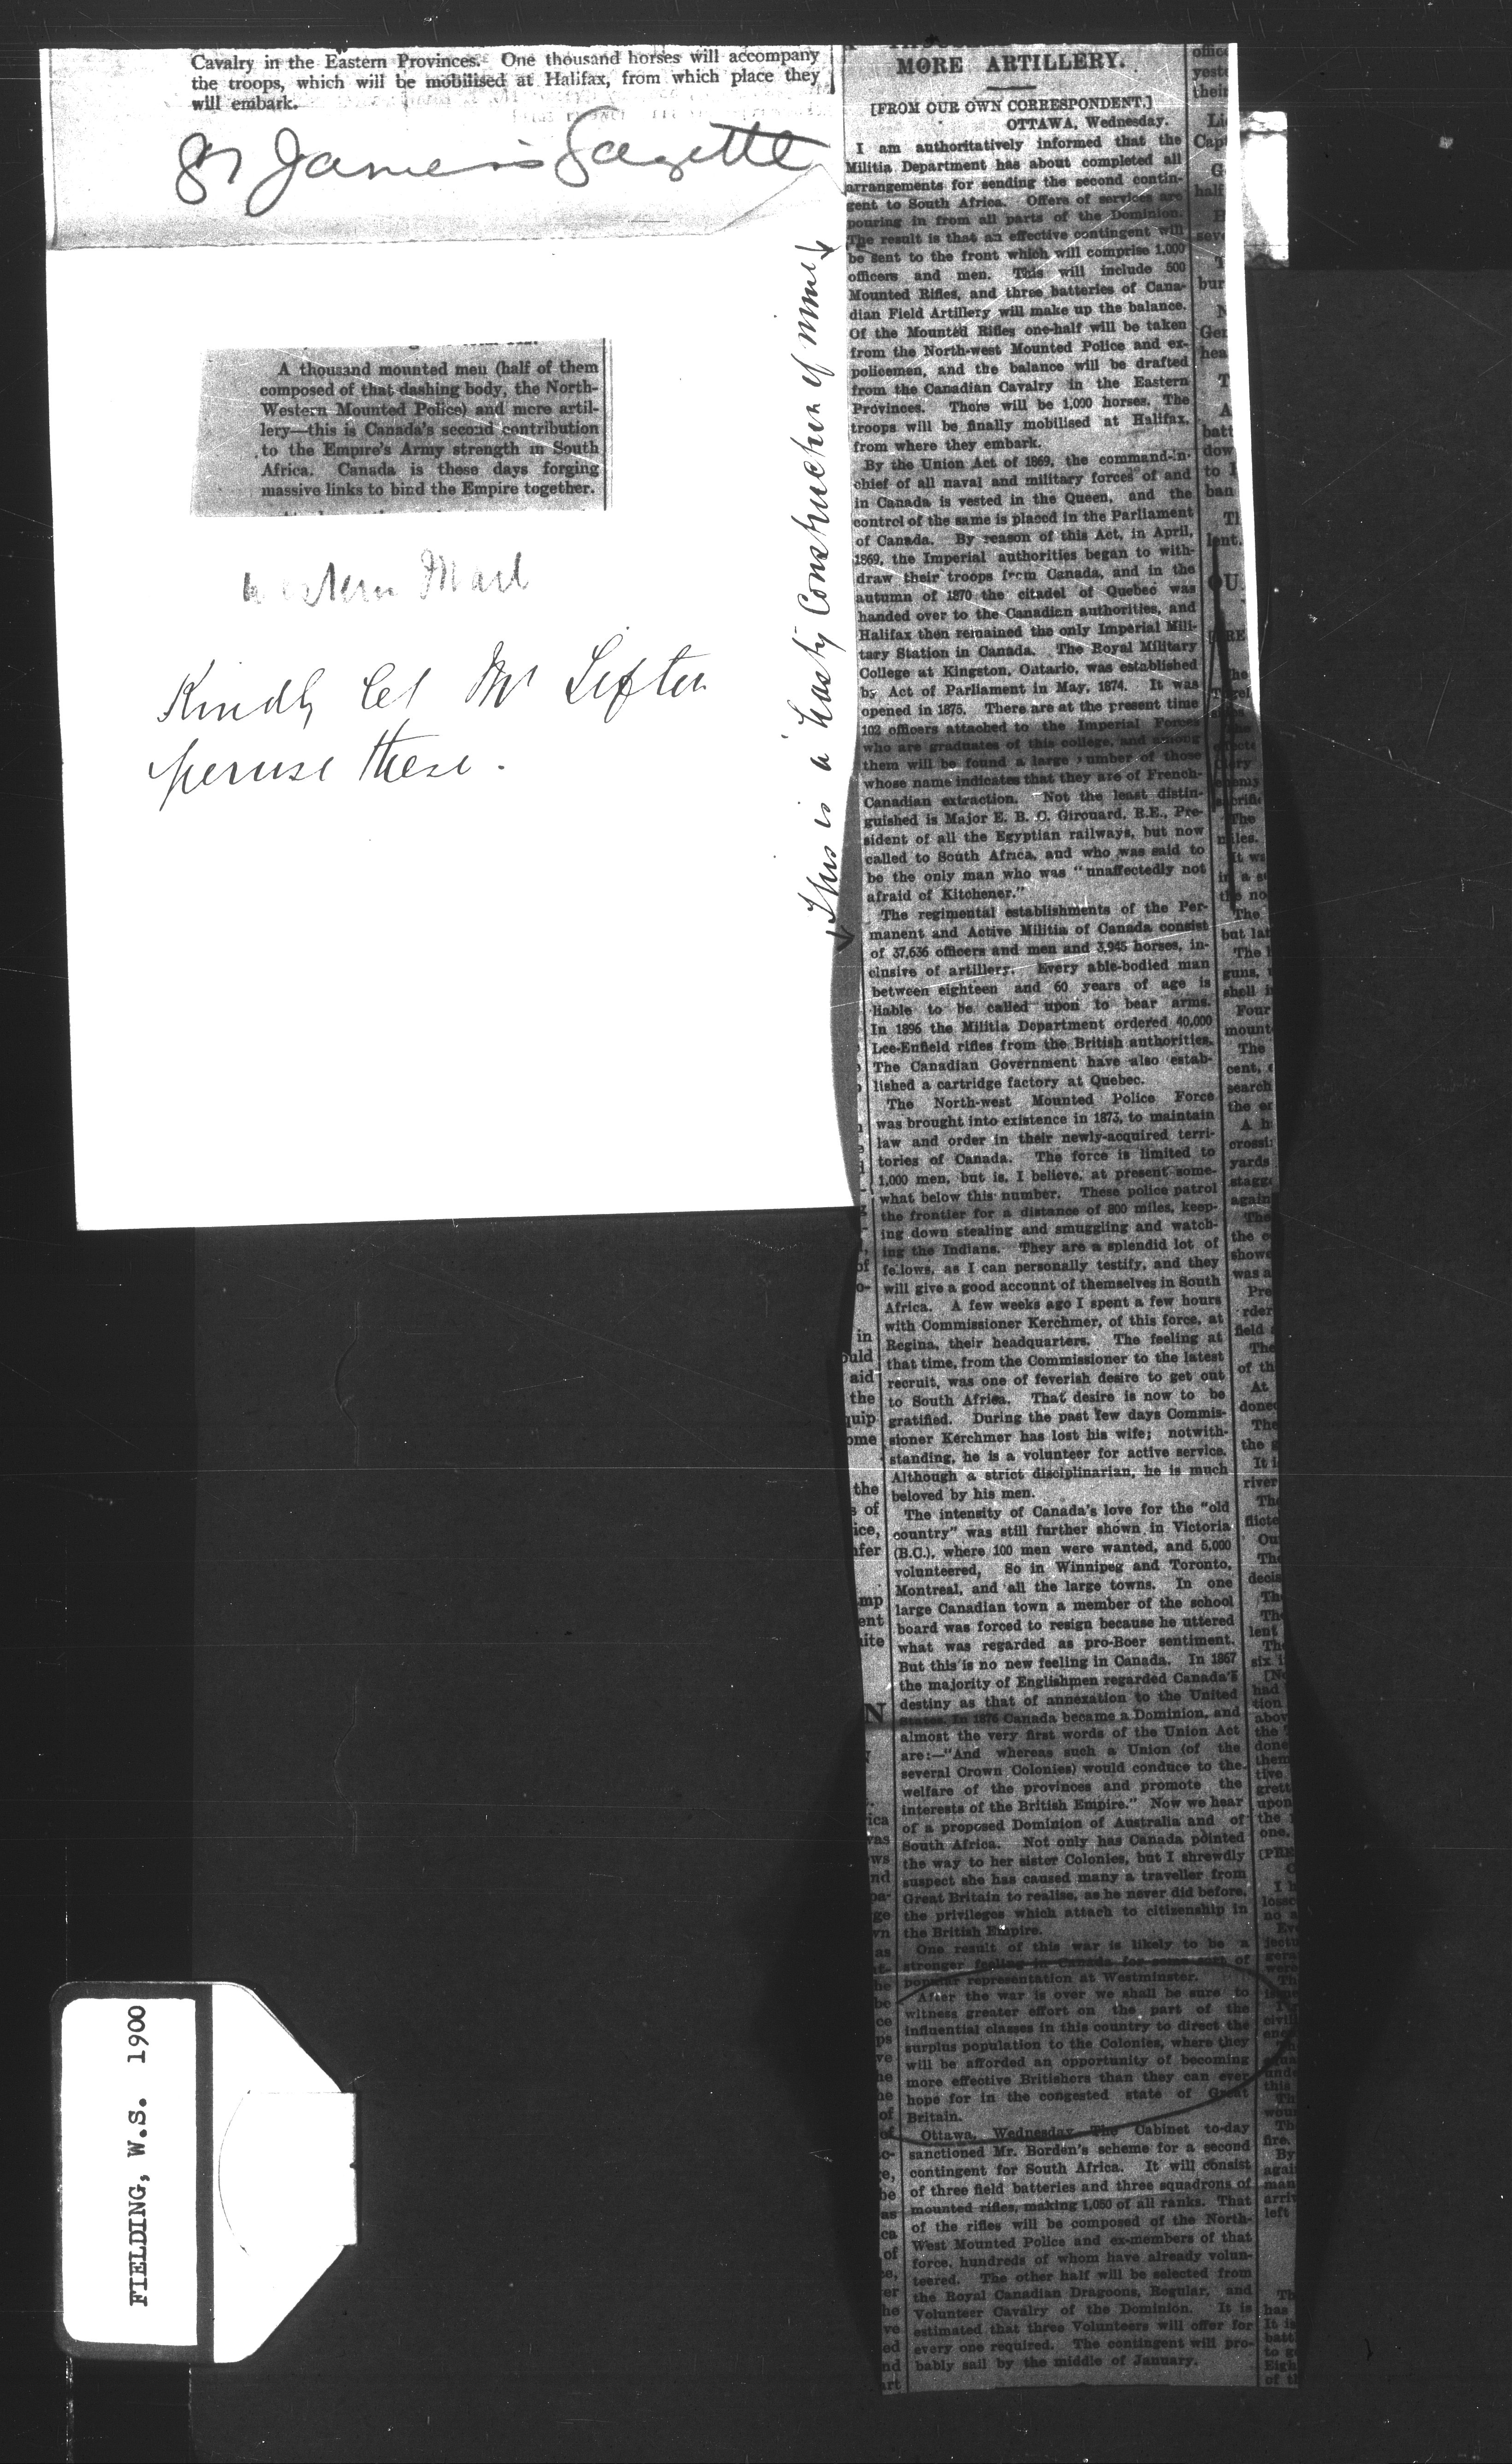 Cavalry in the Eastern Provinces. One thousand horses will accompany
the troops, which will be mobilised at Halifax, from which place they
will embark.
St James's Gazette
A thousand mounted men (half of them
composed of that dashing body, the North-
Western Mounted Police) and more artil-
lery—this is Canada's second contribution
to the Empire's Army strength in South
Africa. Canada is these days forging
massive links to bind the Empire together.
Western Mail
Kindly let Mr Sifton
peruse these.
This is a hasty construction of mine
MORE ARTILLERY.
[FROM OUR OWN CORRESPONDENT.]
OTTAWA, Wednesday.
I am authoritatively informed that the
Militia Department has about completed all
arrangements for sending the second contin-
gent to South Africa. Offers of services are
pouring in from all parts of the Dominion.
The result is that an effective contingent will
be sent to the front which will comprise 1,000
officers and men. This will include 500
Mounted Rifles, and three batteries of Cana-
dian Field Artillery will make up the balance.
Of the Mounted Rifles one-half will be taken
from the North-west Mounted Police and ex-
policemen, and the balance will be drafted
from the Canadian Cavalry in the Eastern
Provinces. There will be 1,000 horses. The
troops will be finally mobilised at Halifax,
from where they embark.
By the Union Act of 1869, the command-in-
chief of all naval and military forces of and
in Canada is vested in the Queen, and the
control of the same is placed in the Parliament
of Canada. By reason of this Act, in April,
1869, the Imperial authorities began to with-
draw their troops from Canada, and in the
autumn of 1870 the citadel of Quebec was
handed over to the Canadian authorities, and
Halifax then remained the only Imperial Mili-
tary Station in Canada. The Royal Military
College at Kingston, Ontario, was established
by Act of Parliament in May, 1874. It was
opened in 1875. There are at the present time
102 officers attached to the Imperial Forces
who are graduates of this college, and among
them will be found a large number of those
whose name indicates that they are of French-
Canadian extraction. Not the least distin-
guished is Major E. B. C. Girouard, R.E., Pre-
sident of all the Egyptian railways, but now
called to South Africa, and who was said to
be the only man who was "unaffectedly not
afraid of Kitchener."
The regimental establishments of the Per-
manent and Active Militia of Canada consist
of 37,636 officers and men and 3,945 horses, in-
clusive of artillery. Every able-bodied man
between eighteen and 60 years of age is
liable to be called upon to bear arms.
In 1896 the Militia Department ordered 40,000
Lee-Enfield rifles from the British authorities.
The Canadian Government have also estab-
lished a cartridge factory at Quebec.
The North-west Mounted Police Force
was brought into existence in 1873, to maintain
law and order in their newly-acquired terri-
tories of Canada. The force is limited to
1,000 men, but is, I believe, at present some-
what below this number. These police patrol
the frontier for a distance of 800 miles, keep-
ing down stealing and smuggling and watch-
ing the Indians. They are a splendid lot of
fellows, as I can personally testify, and they
will give a good account of themselves in South
Africa. A few weeks ago I spent a few hours
with Commissioner Kerchmer, of this force, at
Regina, their headquarters. The feeling at
that time, from the Commissioner to the latest
recruit, was one of feverish desire to get out
to South Africa. That desire is now to be
gratified. During the past few days Commis-
sioner Kerchmer has lost his wife; notwith-
standing, he is a volunteer for active service.
Although a strict disciplinarian, he is much
beloved by his men.
The intensity of Canada's love for the "old
country" was still further shown in Victoria
(B.C.), where 100 men were wanted, and 5,000
volunteered, So in Winnipeg and Toronto,
Montreal, and all the large towns. In one
large Canadian town a member of the school
board was forced to resign because he uttered
what was regarded as pro-Boer sentiment.
But this is no new feeling in Canada. In 1867
the majority of Englishmen regarded Canada's
destiny as that of annexation to the United
States. In 1876 Canada became a Dominion, and
almost the very first words of the Union Act
are:—"And whereas such a Union (of the
several Crown Colonies) would conduce to the
welfare of the provinces and promote the
interests of the British Empire." Now we hear
of a proposed Dominion of Australia and of
South Africa. Not only has Canada pointed
the way to her sister Colonies, but I shrewdly
suspect she has caused many a traveller from
Great Britain to realise, as he never did before,
the privileges which attach to citizenship in
the British Empire.
One result of this war is likely to be a
stronger feeling in Canada for some sort of
popular representation at Westminster.
After the war is over we shall be sure to
witness greater effort on the part of the
influential classes in this country to direct the
surplus population to the Colonies, where they
will be afforded an opportunity of becoming
more effective Britishers than they can ever
hope for in the congested state of Great
Britain.
Ottawa, Wednesday. The Cabinet to-day
sanctioned Mr. Borden's scheme for a second
contingent for South Africa. It will consist
of three field batteries and three squadrons of
mounted rifles, making 1,050 of all ranks. That
of the rifles will be composed of the North-
West Mounted Police and ex-members of that
force, hundreds of whom have already volun-
teered. The other half will be selected from
the Royal Canadian Dragoons, Regular, and
Volunteer Cavalry of the Dominion. It is
estimated that three Volunteers will offer for
every one required. The contingent will pro-
bably sail by the middle of January.
FIELDING, W.S. 1900